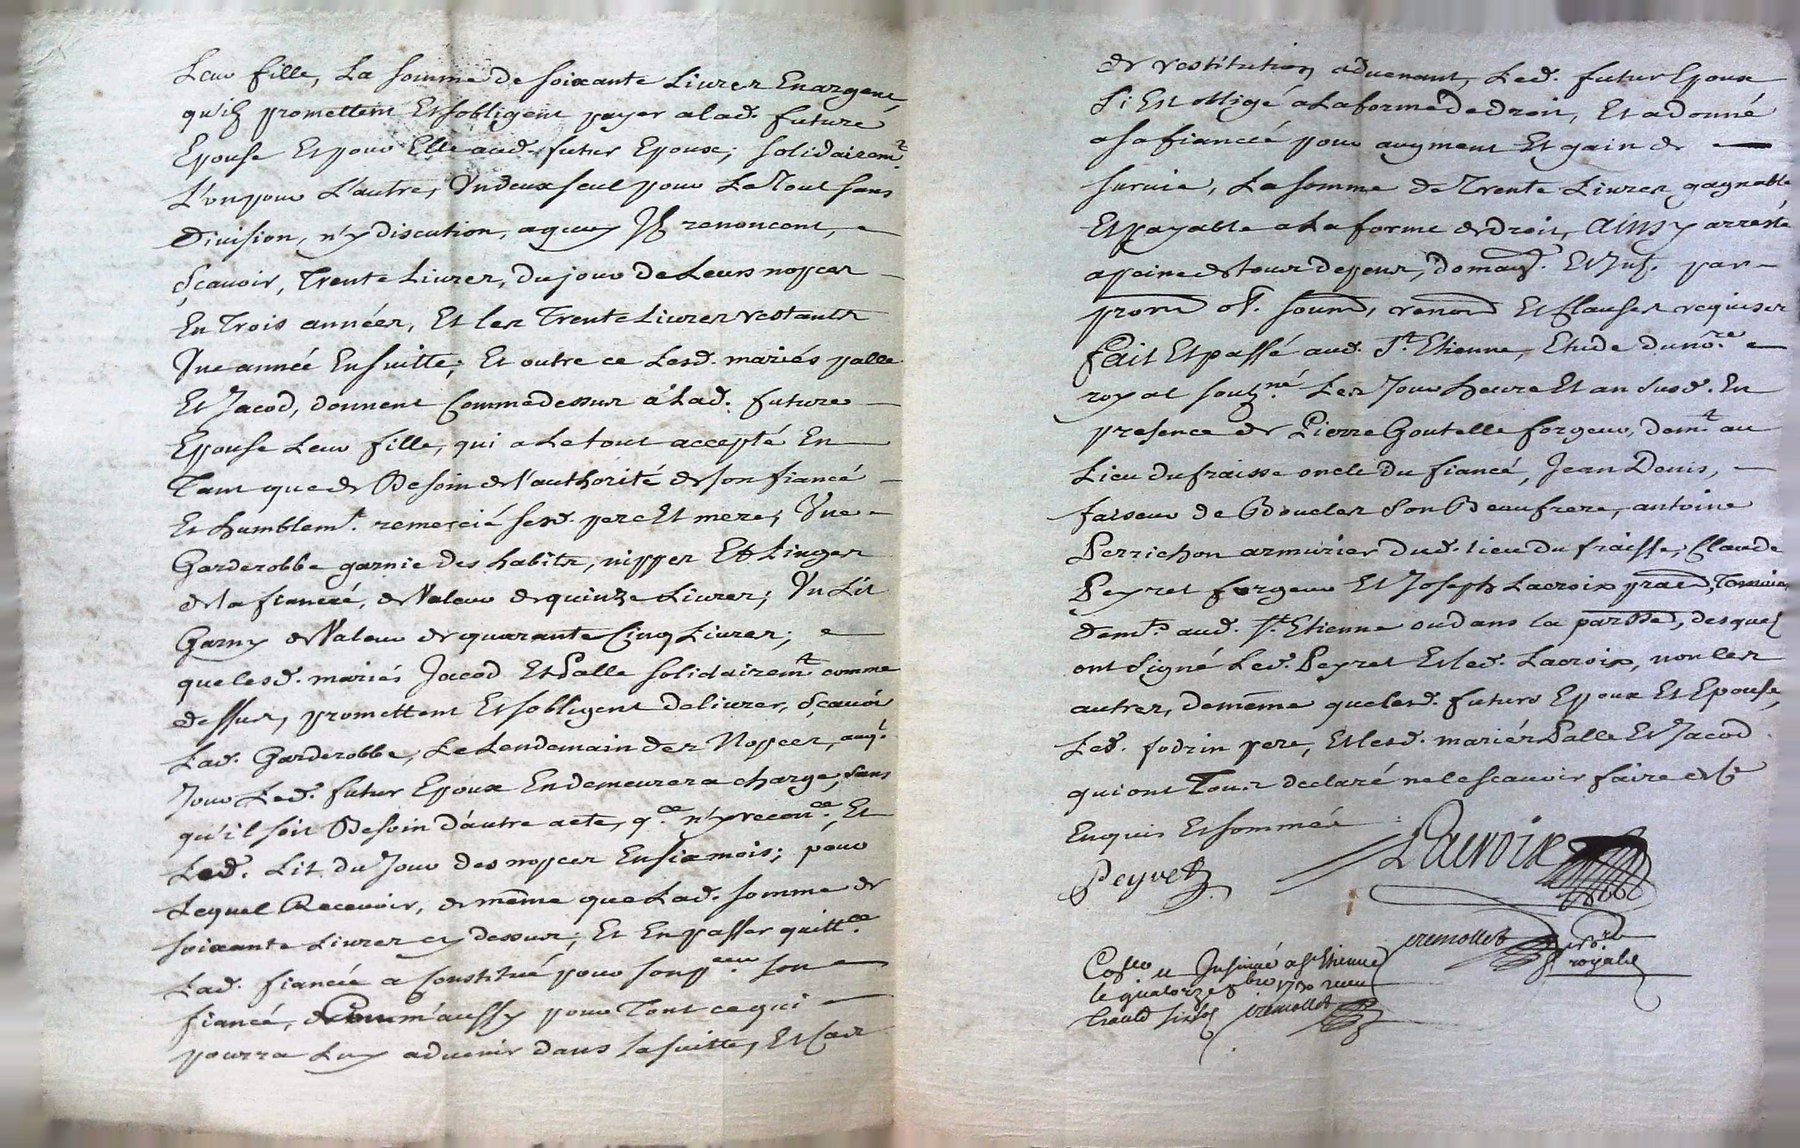 Leur fille, La somme de soixante Livres En argent
qu'ilz promettent Et sobligent payer a lad. future
Epouse Et pour Elle aud. futur Epoux; solidairemt.
L'un pour L'autre, Un deux seul pour Le Tout sans
Division, n'y Discution, a quoy Ilz renoncent,
Sçavoir, Trente Livres, Du jour de Leurs nopces
En Trois années, Et les Trente Livres restants
Une année Ensuitte; Et outre ce Lesd. mariés palle
Et Jacod, donnent Comme dessus à Lad. future
Epouse Leur fille, qui a Le tout accepté En
Tant que de Besoin de l'authorité de son fiancé
Et humblemt. remercié sesd. pere Et mere; Une
Garderobbe garnie des habits, nippes Et Linges
de la fiancée, de Valeur de quinze Livres; Un Lit
Garny de Valeur de quarante Cinq Livres;
que lesd. mariés Jacod Et Palle solidairemt. comme
dessus, promettent Et sobligent delivrer, Sçavoir
Lad. Garderobbe, Le Lendemain des Nopces, auql.
Jour Led. futur Epoux En demeurera chargé, sans
qu'il soit Besoin d'autre acte, qce. n'y reconce., Et
Led. Lit du Jour des nopces En six mois; pour
Lequel Recevoir, de même que Lad. somme de
soixante Livres cy dessus; Et En passer quittce.
Lad. fiancée a Constitué pour son pceur. son
fiancé, de Comm'aussy pour Tout ce qui
pourra Luy advenir dans la suitte, Et Cas
de restitution advenant, Led. futur Epoux
s'i Est obligé a La forme De droit, Et a donné
a sa fiancée pour augment Et gain de
survie, La somme de Trente Livres gagnable
Et payable a La forme de droit, ainsy arresté
a peine de tous depens, domages. Et Int. par
prom ob. soum, renon Et Clauses requises
fait Et passé aud. St. Etienne, Etude du nore.
royal soubzné. Les Jour heure Et an susd. En
presence de Pierre Goutelle forgeur, demt. au
Lieu du fraisse oncle du fiancé, Jean Denis,
faiseur de Boucles son Beaufrere, antoine
Perrichon armurier dud. lieu du fraisse, Claude
Peyret forgeur Et Joseph Lacroix prat, Temoins
demts. aud. St. Etienne ou dans la parsse, desquels
ont signé Led. Peyret Et led. Lacroix, non les
autres, de même que lesd. futurs Epoux Et Epouse,
Led. fodrin pere, Et lesd. mariés Palle Et Jacod
qui ont Tous declaré ne le scavoir faire de ce
Enquis Et sommés
Peyret Lacroix
cremollet nore. royal
Collé Insinué a St Etienne
le quatorze xbre 1730 receu
six sols cremollet